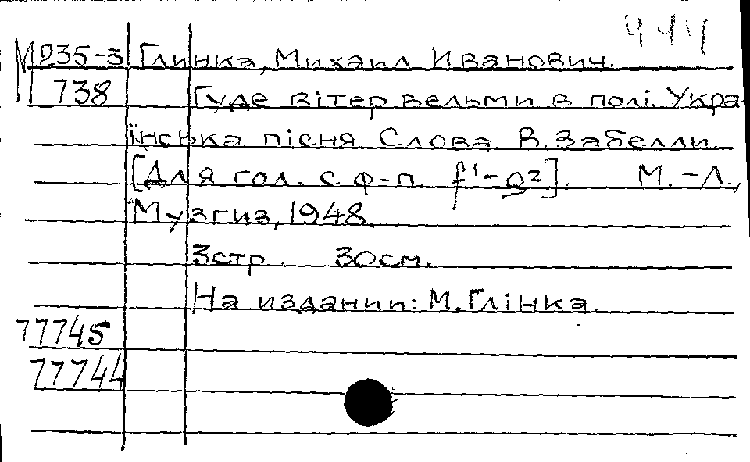 444
М 235-3 Глинка, Михаил Иванович.
738 Гуде вітер вельми в полі. Укра-
їнська пісня Слова В. Забелли
[Для гол. с ф-п. f¹-g²]. М.-Л.,
Музгиз, 1948
3стр. 30см.
На издании: М. Глінка.
77745
77744